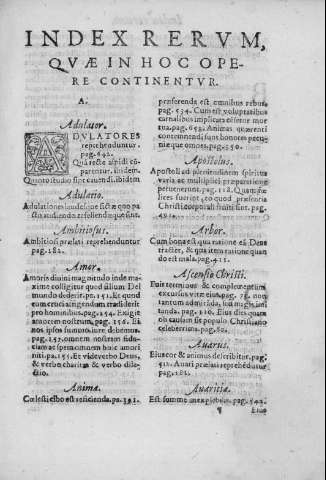 INDEX RERVM,
QVÆ IN HOC OPE-
RE CONTINENTVR.
A.
Adulator.
ADVLATORES
reprehēduntur.
pag. 642.
Quā recte aspidi cō
parentur. ibidem.
Quoto studio sint cauendi. ibidem
Adulatio.
Adulationes laudesque sictæ quo pa
cto audiendo refellendæque sunt.
Ambitiosus.
Ambitiosi prælati reprehenduntur
pag. 182.
Amor.
Amoris diuini magnitudo inde ma-
xime colligitur quod filium Dei
mundo dederit. pa. 151. Et quod
eum cruciandum ignominiose tradiderit
pro hominibus. pag. 154. Exigit
amorem nostrum, pag. 156. Ei
nos ipsos summo iure debemus.
pag. 157. omnem nostram fidu-
ciam ac spem omnem hoc amore
niti. pa. 151. Et vide verbo Deus,
& verbo charitas & verbo dile-
ctio.
Anima.
Cœlesti cibo est reficienda. pa. 391.
præferenda est omnibus rebus.
pag. 534. Cum est voluptatibus
carnalibus implicata efficitur mor-
tua, pag. 653. Animas quærenti
contemnendi sunt honores pecu-
niæque omnes. pag. 350.
Apostolus.
Apostoli ad plenitudinem spiritus
varia ac multiplici præparatione
peruenerunt. pag. 118. Quam fe-
lices fuerint, eo quod præsentia
Christi corporali fruiti sint. pag.
Arbor.
Cum bona est qua ratione eā Deus
tractet, & qua item ratione quan
do est mala. pag. 415.
Ascensio Christi.
Fuit terminus & complementum
excursus vitæ eius. pag. 78. non
tantum admirāda, sed magis lætis
tanda. pag. 110. Eius dies quam
ob causam sit populo Christiano
celeberrima. pag. 80.
Auarus.
Eius cor & animus describitur. pag.
512. Auari prælati reprehēdutur
pag. 181.
Auaritia.
Est summe inexplebilis. pag. 542.
¶ Eius